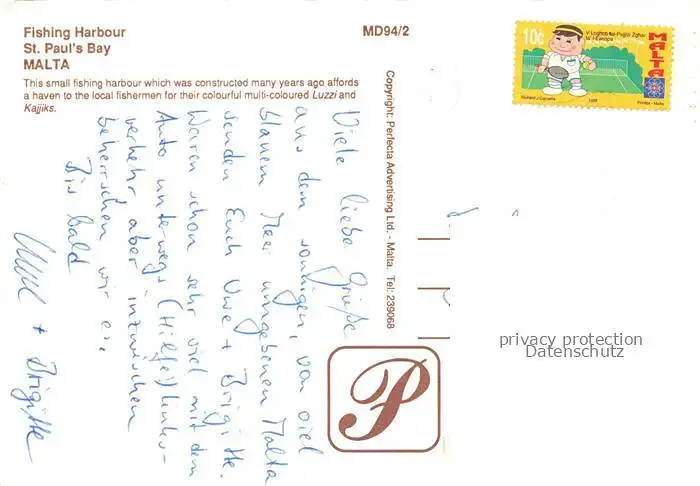 Fishing Harbour
St. Paul's Bay
MALTA
This small fishing harbour which was constructed many years ago affords
a haven to the local fishermen for their colourful multi-coloured Luzzi and
Kajjiks.
MD94/2
Viele liebe Grüße
aus dem sonnigen, von viel
blauem Meer umgebenen Malta
senden Euch Uwe + Brigitte.
Waren schon sehr viel mit dem
Auto unterwegs (Hilfe!) Links-
verkehr, aber inzwischen
beherrschen wir es.
Bis bald
Uwe + Brigitte
Copyright: Perfecta Advertising Ltd. - Malta. Tel: 239068
P
10c
MALTA
privacy protection
Datenschutz